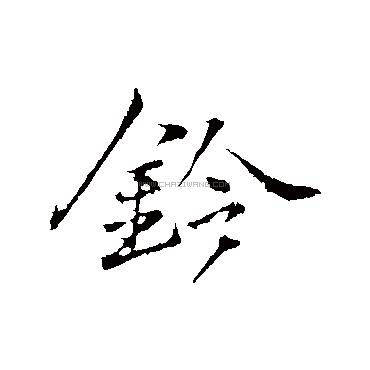 鈴
CHAZIWANG.COM